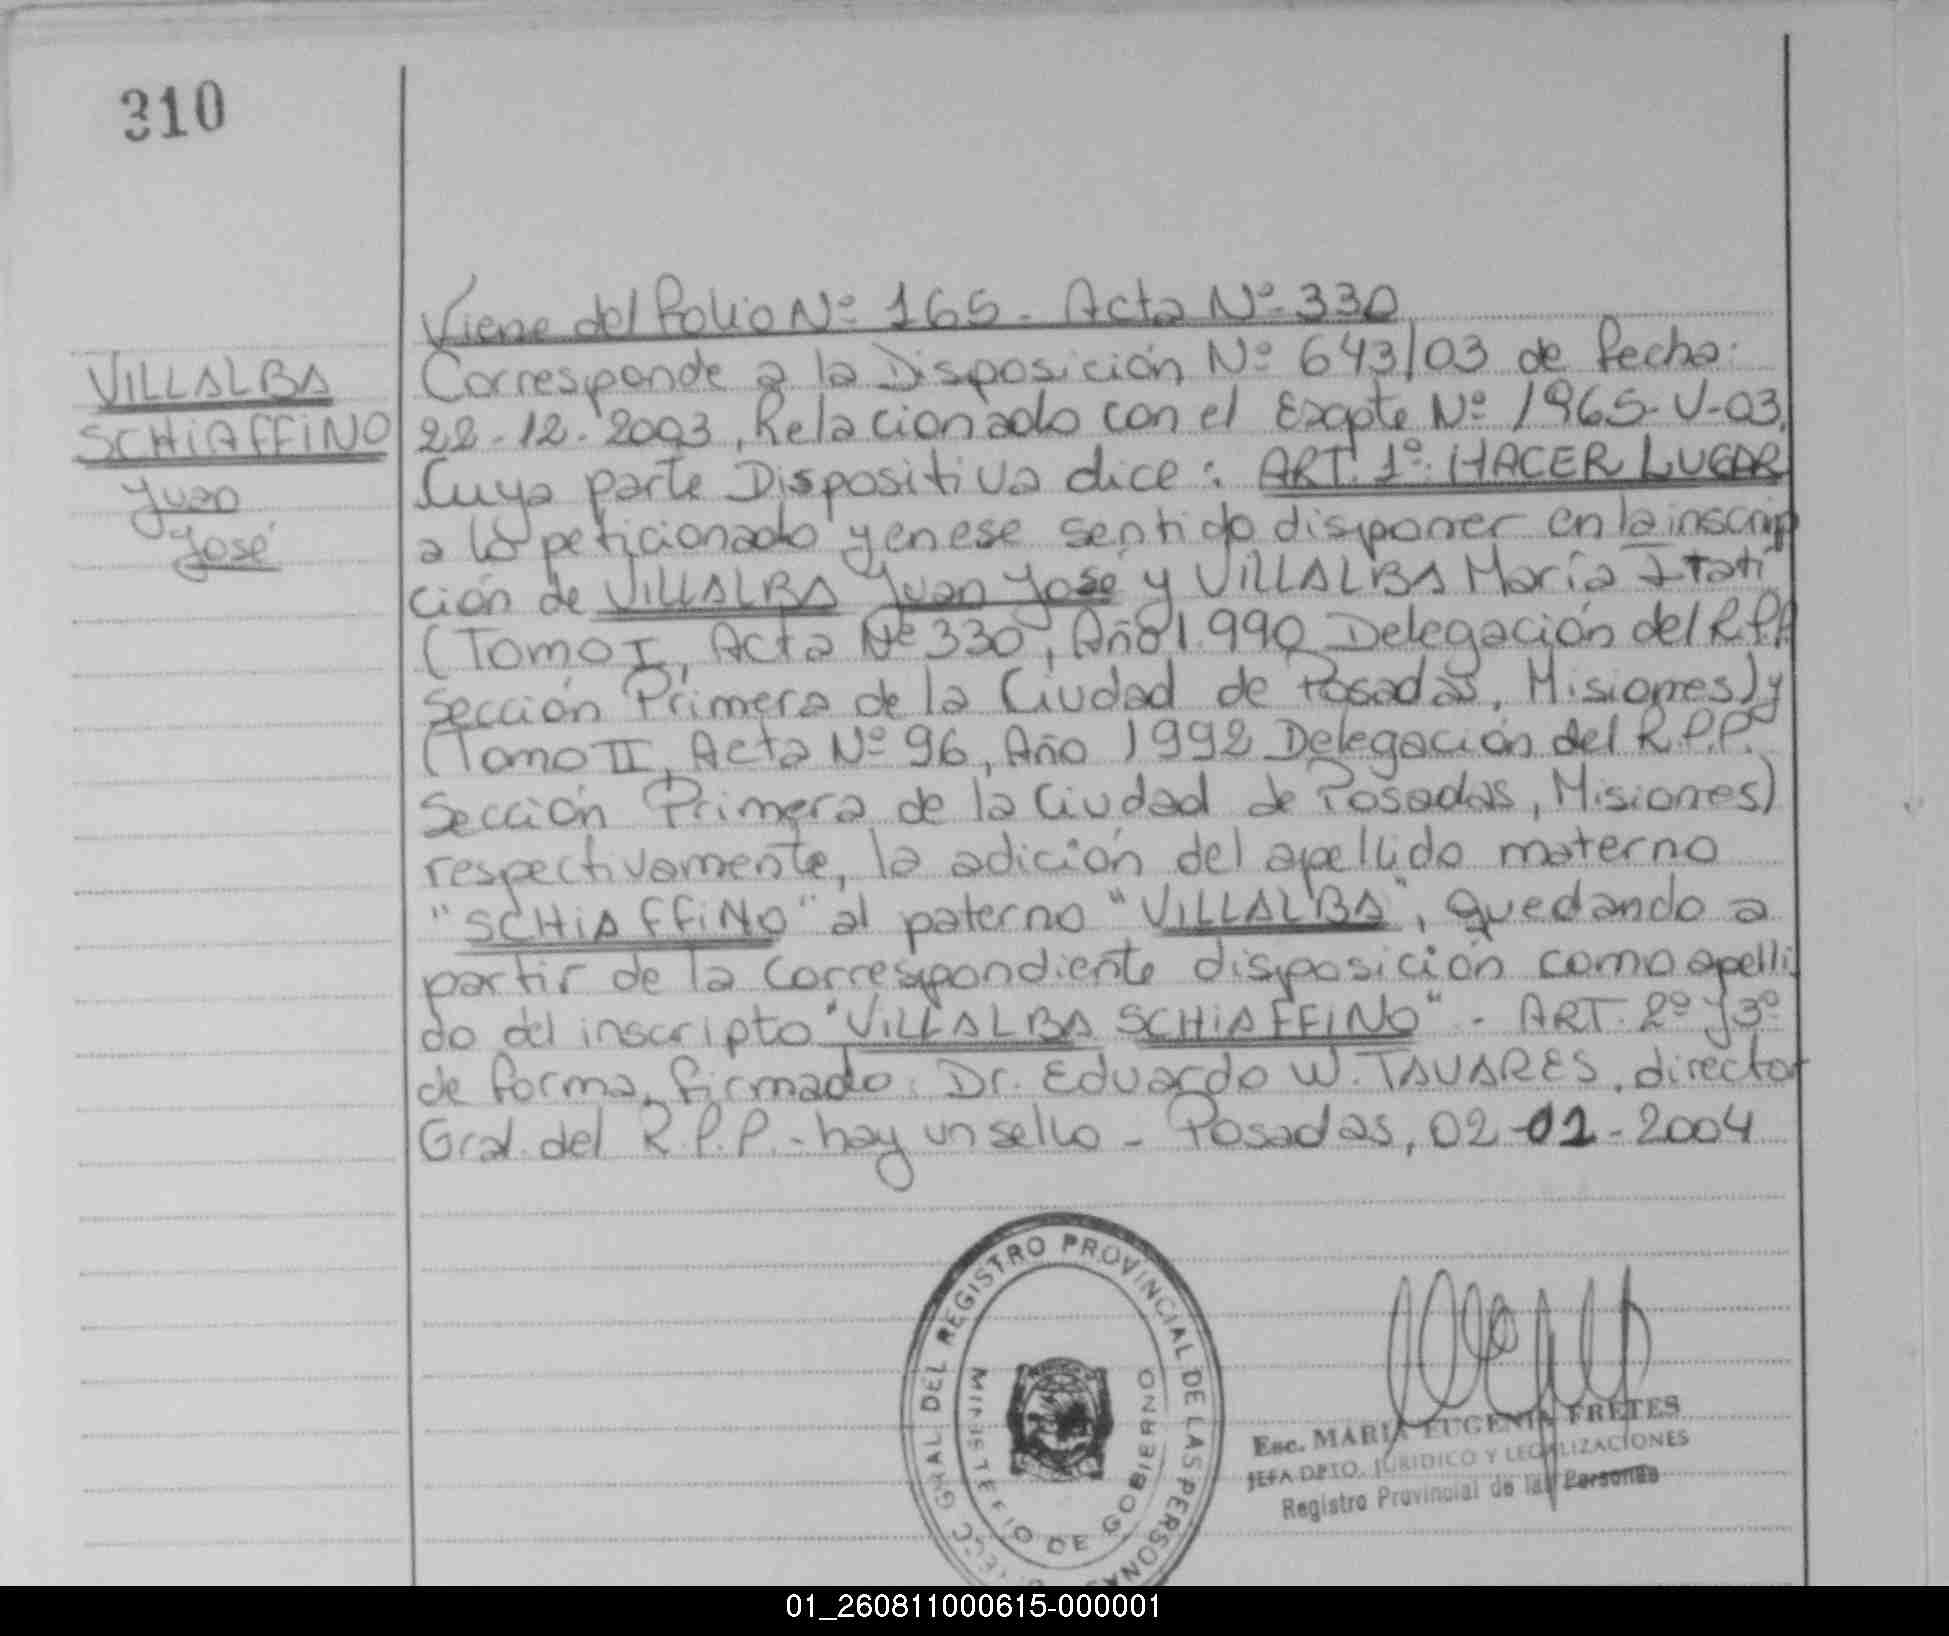 310
Viene del folio Nº 165 - Acta Nº 330
VILLALBA
SCHIAFFINO
Juan
José
Corresponde a la Disposición Nº 643/03 de fecha:
22-12-2003, Relacionado con el Expte Nº 1965-V-03,
Cuya parte Dispositiva dice: ART. 1º: HACER LUGAR
a lo peticionado y en ese sentido disponer en la inscrip
ción de VILLALBA Juan José y VILLALBA María Itatí
(Tomo I, Acta Nº 330, Año 1.990 Delegación del R.P.P
Sección Primera de la Ciudad de Posadas, Misiones) y
(Tomo II, Acta Nº 96, Año 1992 Delegación del R.P.P.
Sección Primera de la Ciudad de Posadas, Misiones)
respectivamente, la adición del apellido materno
"SCHIAFFINO" al paterno "VILLALBA", quedando a
partir de la correspondiente disposición como apelli
do del inscripto "VILLALBA SCHIAFFINO" - ART. 2º y 3º
de forma, firmado: Dr. Eduardo W. TAVARES, director
Gral. del R.P.P. - hay un sello - Posadas, 02-01-2004
GRAL DEL REGISTRO PROVINCIAL DE LAS PERSONAS
MINISTERIO DE GOBIERNO
Esc. MARIA EUGENIA FRETES
JEFA DPTO. JURIDICO Y LEGALIZACIONES
Registro Provincial de las Personas
01_260811000615-000001